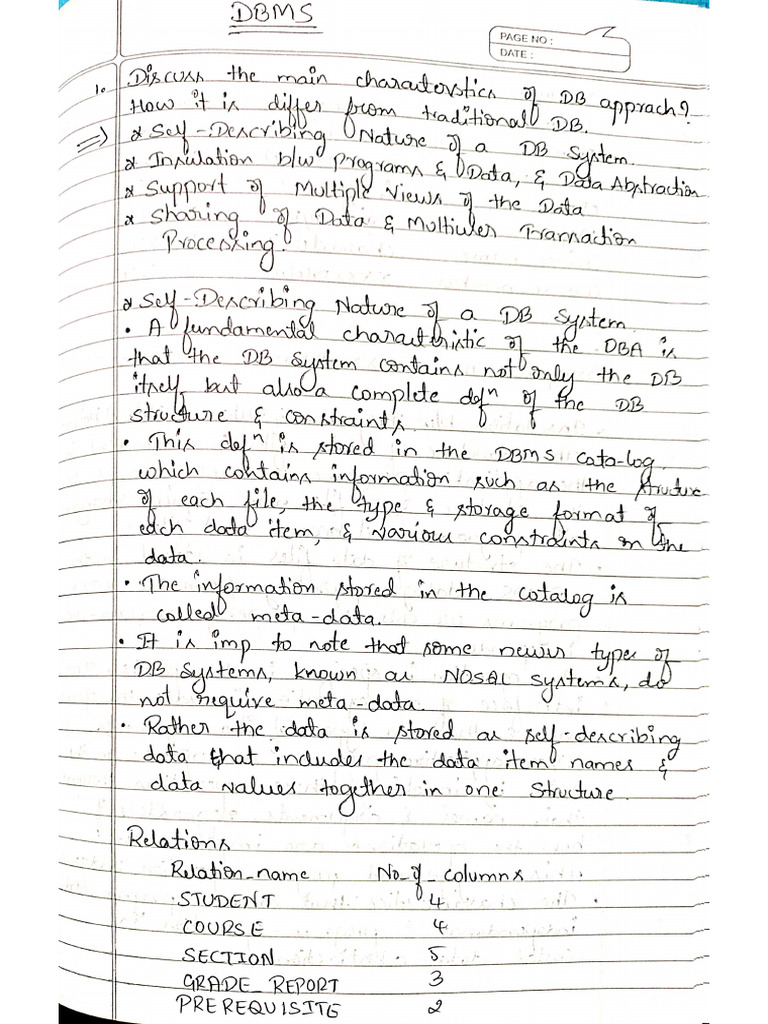 DBMS
PAGE NO :
DATE :
1. Discuss the main characterstics of DB apprach?
How it is differ from traditional DB.
⇒ * Self-Describing Nature of a DB System.
* Insulation b/w Programs & Data, & Data Abstraction
* Support of Multiple Views of the Data
* Sharing of Data & Multiuser Transaction
Processing.
* Self-Describing Nature of a DB System.
• A fundamental characteristic of the DBA is
that the DB System contains not only the DB
itself but also a complete defⁿ of the DB
structure & constraints.
• This defⁿ is stored in the DBMS cata-log
which contains information such as the structure
of each file, the type & storage format of
each data item, & various constraints on the
data.
• The information stored in the catalog is
called meta-data.
• It is imp to note that some newer types of
DB Systems, known as NOSQL systems, do
not require meta-data.
• Rather the data is stored as self-describing
data that includes the data item names &
data values together in one Structure.
Relations
Relation_name No_of_columns
STUDENT 4
COURSE 4
SECTION 5
GRADE_REPORT 3
PREREQUISITE 2